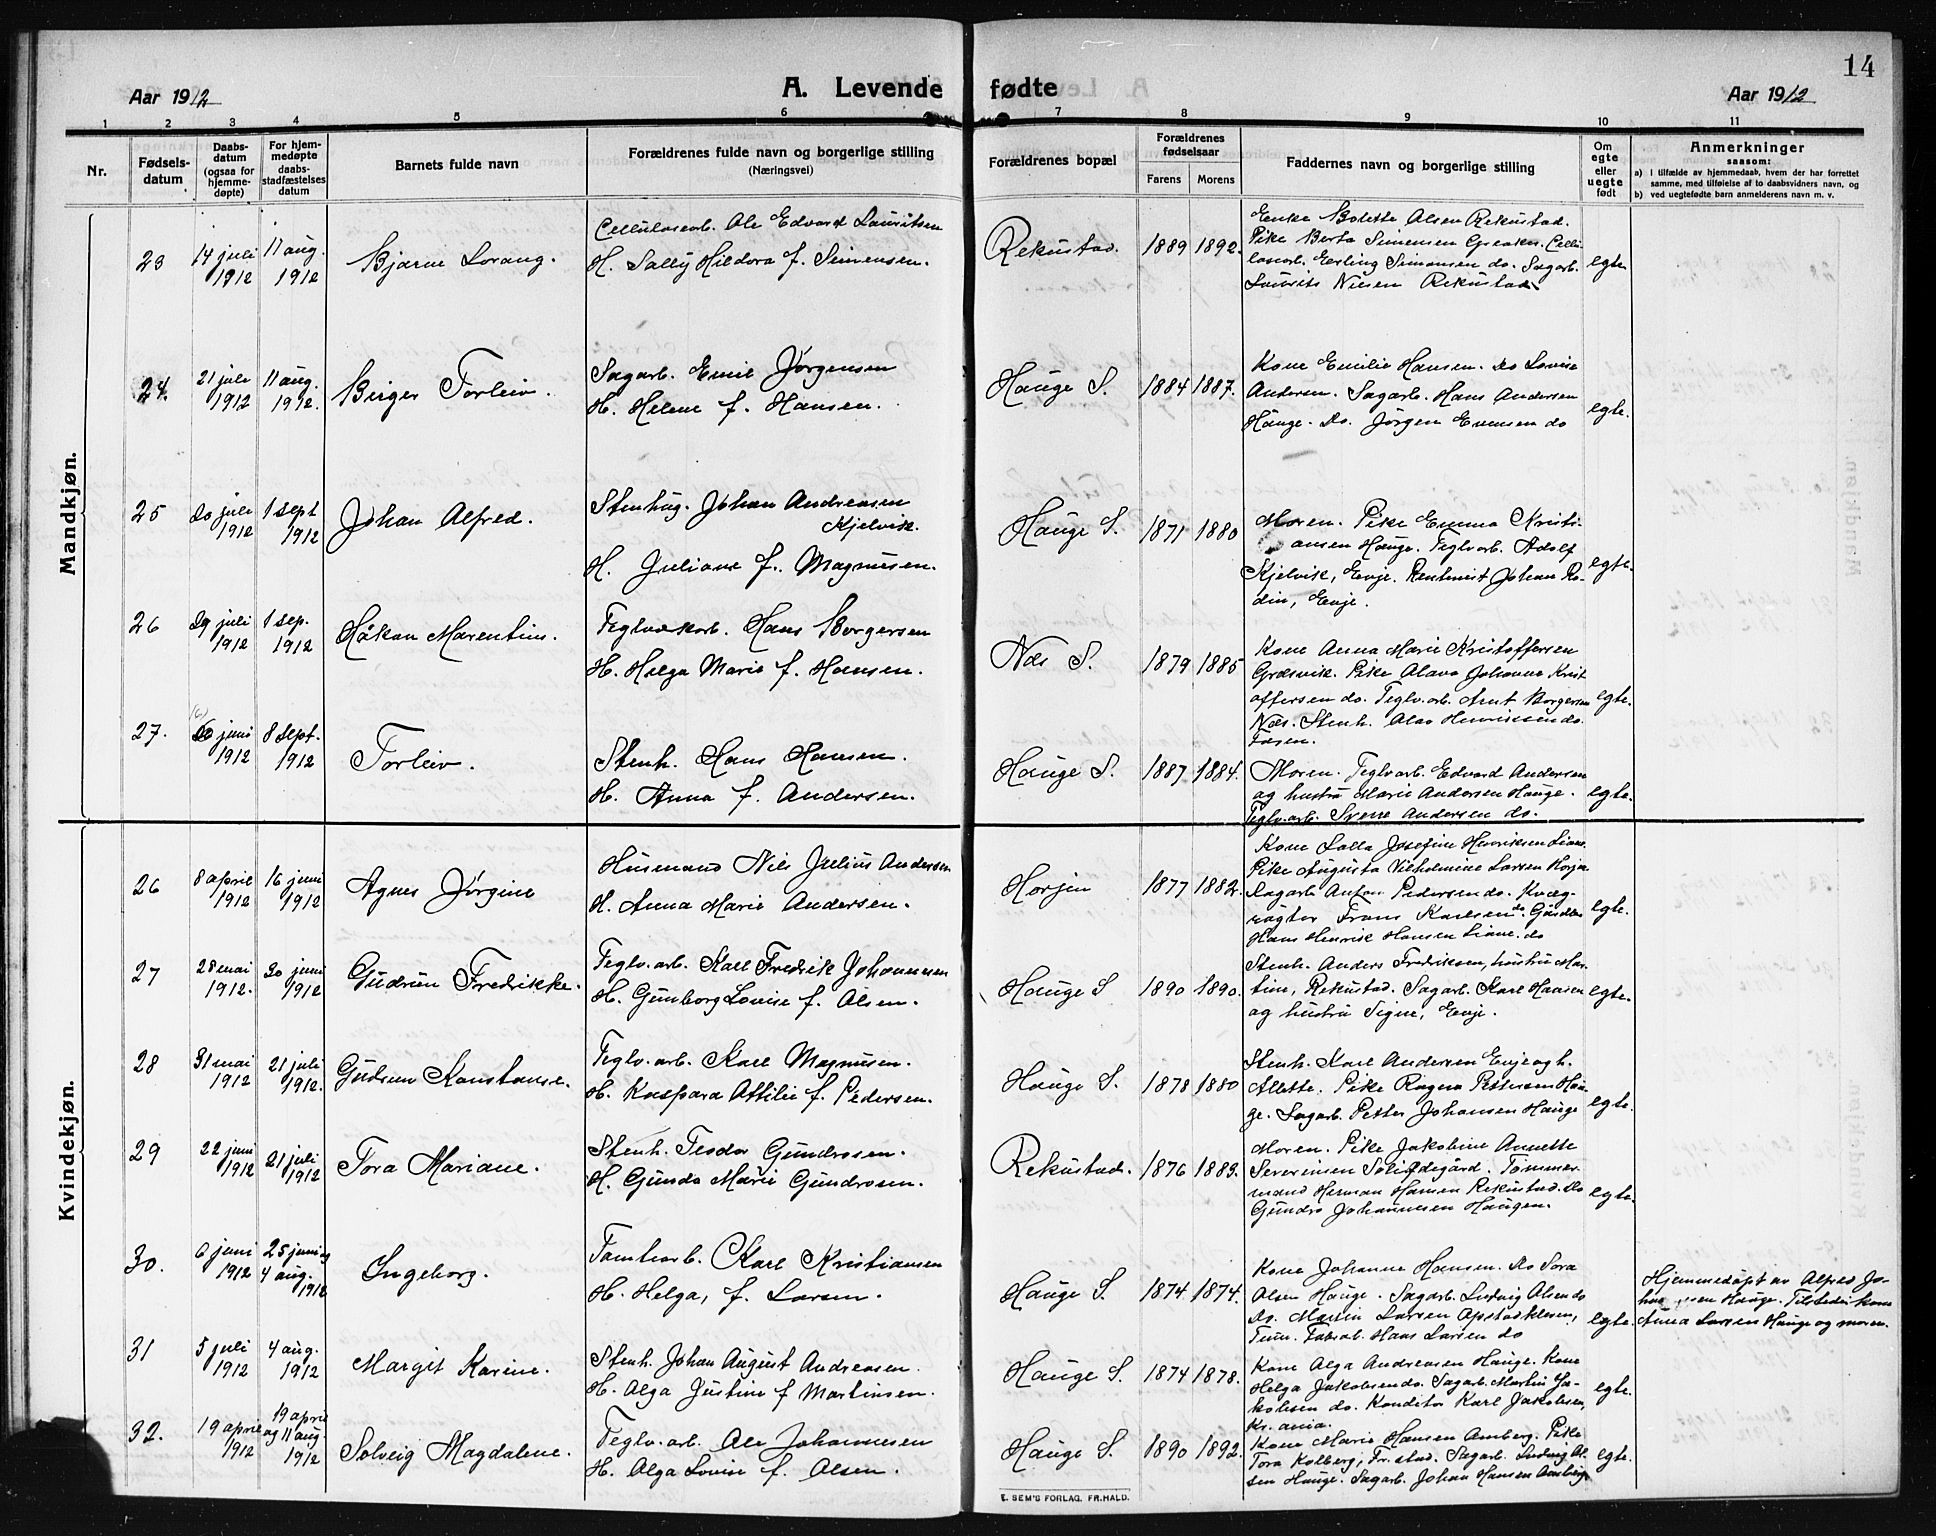 14
Aar 1912
A. Levende fødte
Aar 1912
1 2 3 4 5 6 7 8 9 10 11
Nr.
Fødsels-
datum
Daabs-
datum
(ogsaa for
hjemme-
døpte)
For hjem-
medøpte
daabs-
stadfæstelses
datum
Barnets fulde navn
Forældrenes fulde navn og borgerlige stilling
(Næringsvei)
Forældrenes bopæl
Forældrenes
fødselsaar
Farens Morens
Faddernes navn og borgerlige stilling
Om
egte
eller
uegte
født
Anmerkninger
saasom:
a) I tilfælde av hjemmedaab, hvem der har forrettet
samme, med tilføielse af to daabsvidners navn, og
b) ved uegtefødte barn anmelderens navn m. v.
Mandkjøn.
23
14 juli
1912
11 aug.
1912
Bjarne Lorang.
Cellulosearb. Ole Edvard Lauritsen
H. Sally Hildora f. Simensen.
Rekustad.
1889 1892.
Enke Bolette Olsen Rekustad.
Pike Berta Simensen Greaker. Cellu-
losearb. Erling Simonsen do. Sagarb.
Laurits Nilsen Rekustad
egte
24.
21 juli
1912
11 aug.
1912.
Birger Torleiv.
Sagarb. Emil Jörgensen
H. Helene f. Hansen.
Hauge S.
1884 1887.
Kone Emilie Hansen. Do Lovise
Andersen. Sagarb. Hans Andersen
Hauge. Do. Jörgen Evensen do
egte.
25
20 juli
1912
1 sept
1912
Johan Alfred.
Stenhug. Johan Andreasen
Kjelvik.
H. Juliane f. Magnusen.
Hauge S.
1871 1880
Moren. Pike Emma Kristi-
ansen Hauge. Teglv.arb. Adolf
Kjelvik, Enje. Rentenist Johan Ro-
din, Enje.
egte.
26
29 juli
1912
1 sep.
1912
Håkon Marentius.
Teglverkarb. Hans Borgersen
H. Helga Marie f. Hansen.
Næs S.
1879 1885
Kone Anna Marie Kristoffersen
Græsvik. Pike Olava Johanne Krist
offersen do. Teglv.arb. Arnt Borgersen
Næs. Stenh. Olav Henriksen do.
egte.
27.
juni
1912
8 sept.
1912
Torleiv.
Stenh. Hans Hansen.
H. Anna f. Andersen.
Hauge S.
1887 1884.
Moren. Teglv.arb. Edvard Andersen
og hustru Marie Andersen Hauge.
Teglv.arb. Sverre Andersen do.
egte.
Kvindekjøn.
26
8 april
1912
16 juni
1912
Agnes Jörgine
Husmand Nils Julius Andersen
H. Anna Marie Andersen.
Horjen
1877 1882.
Kone Lalla Josefine Henriksen Liane.
Pike Augusta Vilhelmine Larsen Horjen
Sagarb. Anton Pedersen do. Kvæg-
røgter Frans Karlsen do.
Hans Henrik Hansen Liane. do
egte.
27
28 mai
1912.
30 juni
1912
Gudrun Fredrikke.
Teglv.arb. Karl Fredrik Johannesen
H. Gunborg Lovise f. Olsen.
Hauge S
1890 1890.
Stenh. Anders Fredriksen, hustru Mar-
tine, Rekustad. Sagarb. Karl Hansen
og hustru Signe, Enje.
egte.
28
31 mai
1912
21 juli
1912.
Gudrun Konstanse.
Teglv.arb. Karl Magnusen.
H. Kaspara Attilie f. Pedersen.
Hauge S.
1878 1880
Stenh. Karl Andersen Enje og h.
Allette. Pike Ragna Pettersen Hau-
ge. Sagarb. Petter Johansen Hauge
egte.
29
22 juni
1912
21 juli
1912
Tora Mariane.
Stenh. Teodor Gundrosen.
H. Gunda Marie Gundrosen.
Rekustad.
1876 1883.
Moren. Pike Jakobine Annette
Severinsen Solifdegård. Tömmer-
mand Herman Hansen Rekustad. Do
Gundro Johannesen Haugen.
egte.
30.
6 juni
1912
25 juni og
4 aug.
1912
Ingeborg.
Tomtearb. Karl Kristiansen
H. Helga, f. Larsen.
Hauge S.
1874 1874.
Kone Johanne Hansen. Do Sora
Olsen Hauge. Sagarb. Ludvig Olsen do
Do. Martin Larsen Opstadkleven,
Tune. Fabrarb. Hans Larsen do
egte.
Hjemmedöpt av Alfred Jo-
hansen Hauge. Tilstede: kone
Anna Larsen Hauge og moren.
31
5 juli
1912
4 aug.
1912
Margit Karine.
Stenh. Johan August Andreasen.
H. Olga Justine f Martinsen.
Hauge S.
1874 1878.
Kone Olga Andreasen Hauge. Kone
Helga Jakobsen do. Sagarb. Martin Ja-
kobsen do. Konditor Karl Jakobsen,
Kr.ania.
egte.
32.
19 april
1912
19 april
og 11 aug.
1912
Solveig Magdalene.
Teglv.arb. Ole Johannesen
H. Olga Lovise f. Olsen.
Hauge S.
1890 1892.
Kone Marie Hansen Omberg. Pike
Tora Kolberg, Fr.stad. Sagarb. Ludvig Ol-
sen Hauge. Sagarb. Johan Hansen Omberg
egte.
E. SEM'S FORLAG, FR.HALD.